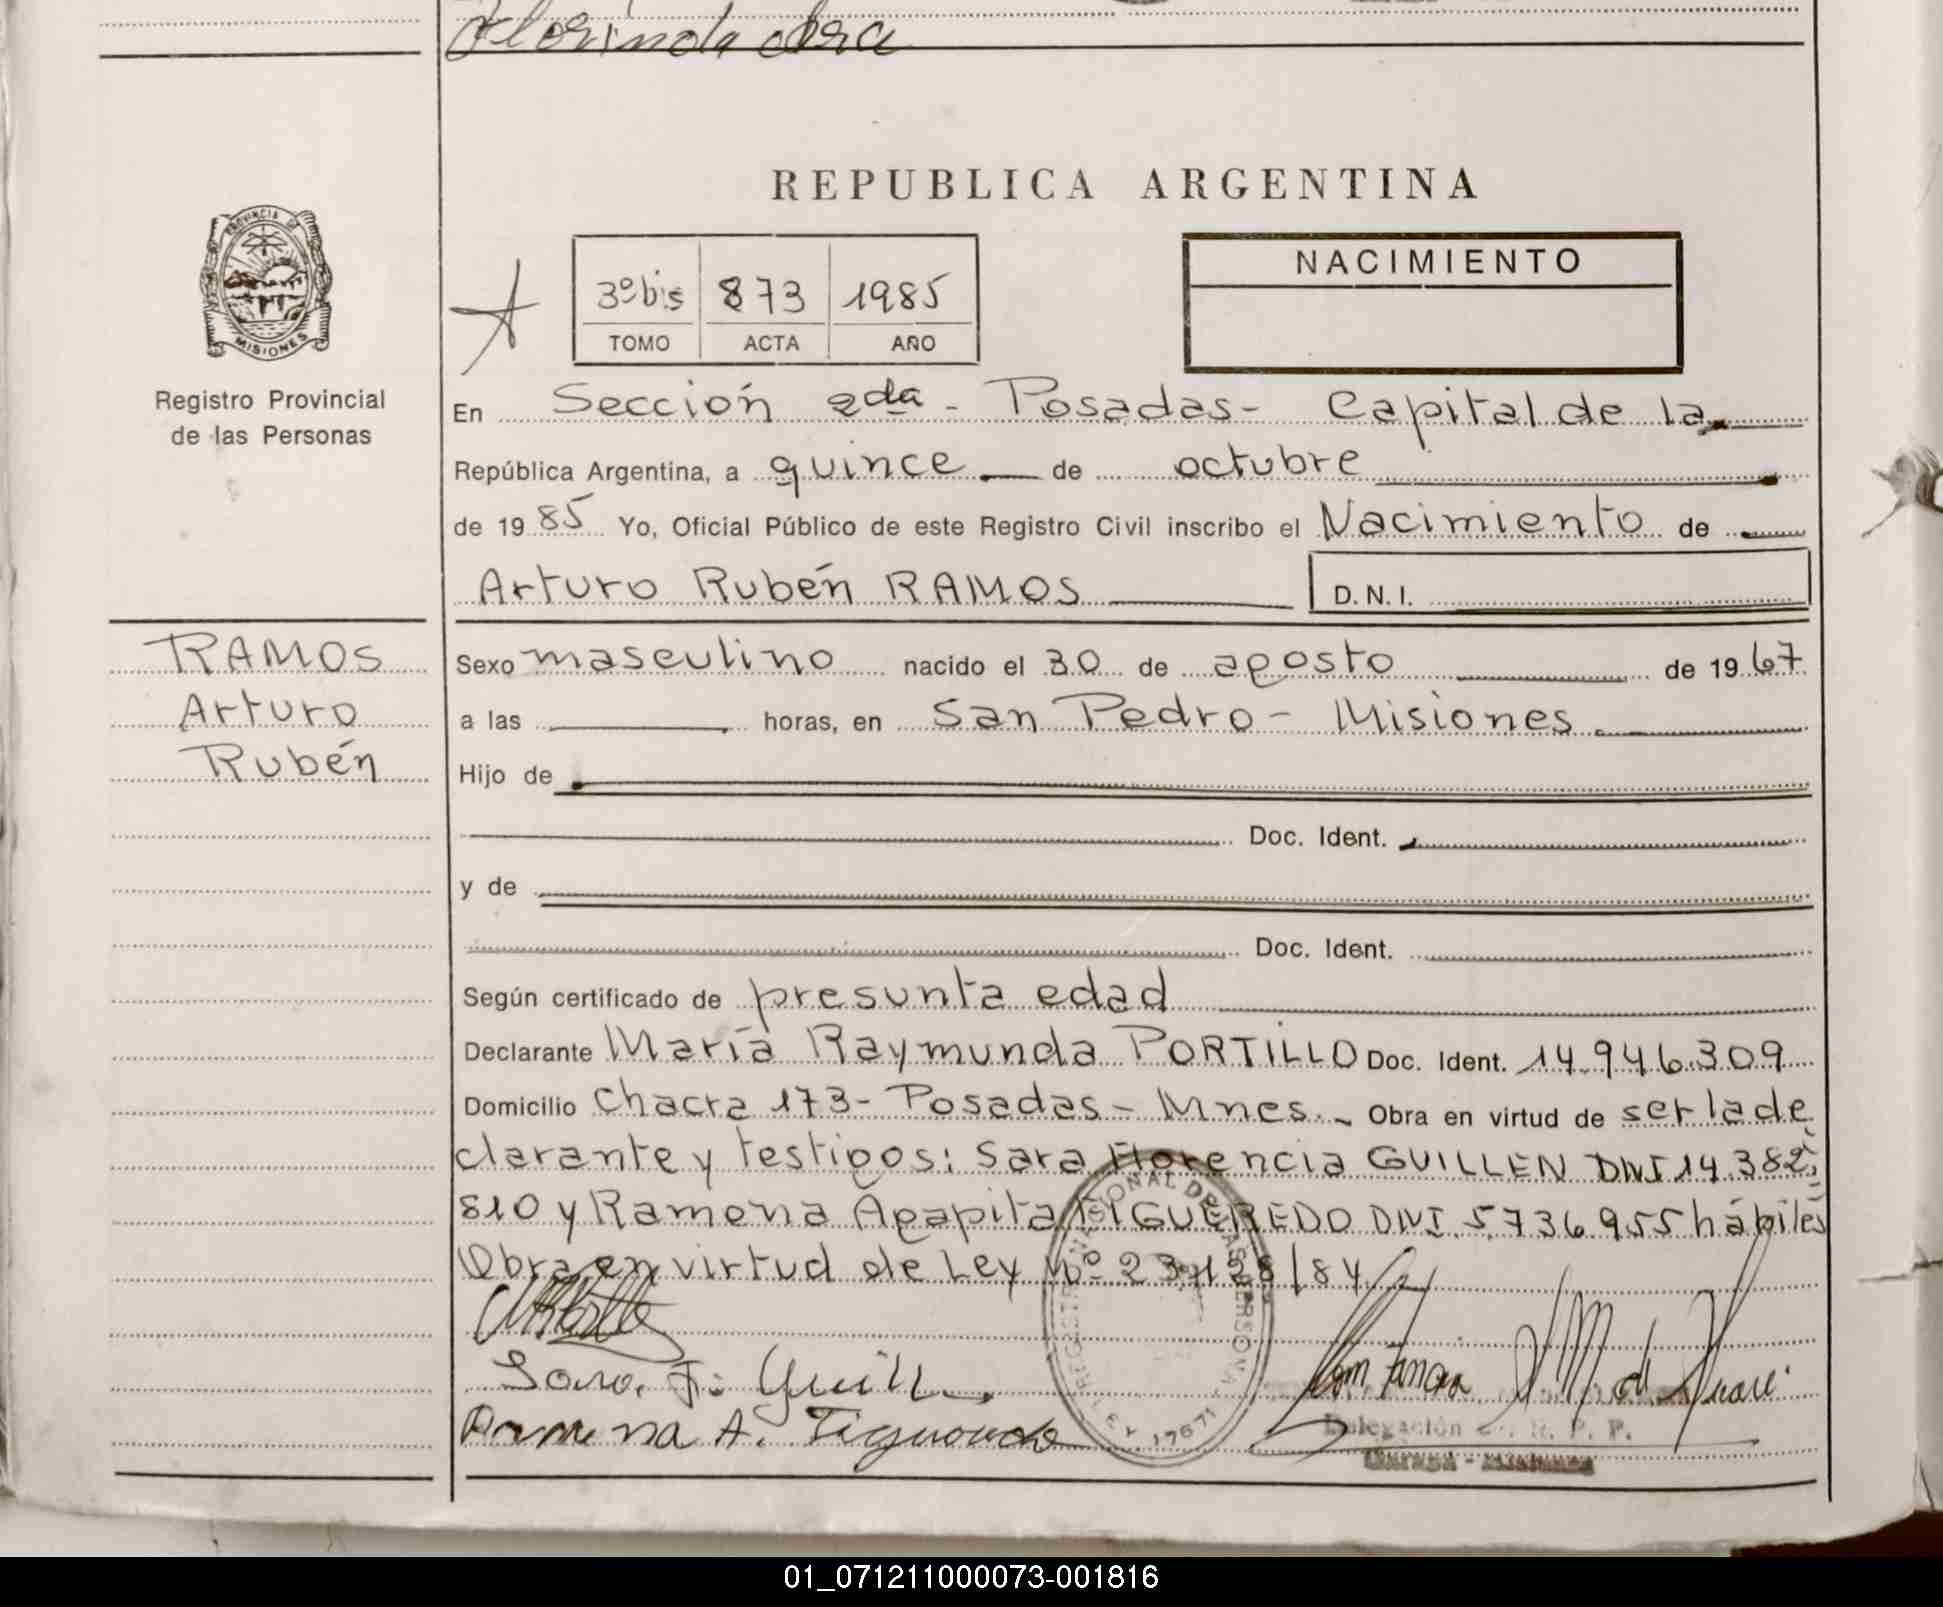 Florinda
REPUBLICA ARGENTINA
PROVINCIA DE
MISIONES
Registro Provincial
de las Personas
3º bis 873 1985
TOMO ACTA AÑO
NACIMIENTO
En Sección 2da - Posadas - Capital de la
República Argentina, a quince de octubre
de 1985 Yo, Oficial Público de este Registro Civil inscribo el Nacimiento de
Arturo Rubén RAMOS D.N.I.
RAMOS
Arturo
Rubén
Sexo masculino nacido el 30 de agosto de 1967
a las horas, en San Pedro - Misiones
Hijo de
Doc. Ident.
y de
Doc. Ident.
Según certificado de presunta edad
Declarante María Raymunda PORTILLO Doc. Ident. 14.946.309
Domicilio Chacra 173 - Posadas - Mnes. Obra en virtud de ser la de
clarante y testigos: Sara Florencia GUILLEN DNI 14.382.
810 y Ramona Agapita FIGUEREDO DNI. 5.736.955 hábiles
Obra en virtud de Ley Nº 23.128/84
Sara F. Guill
Ramona A. Figueredo
Delegación R. P. P.
LEY 17671
01_071211000073-001816